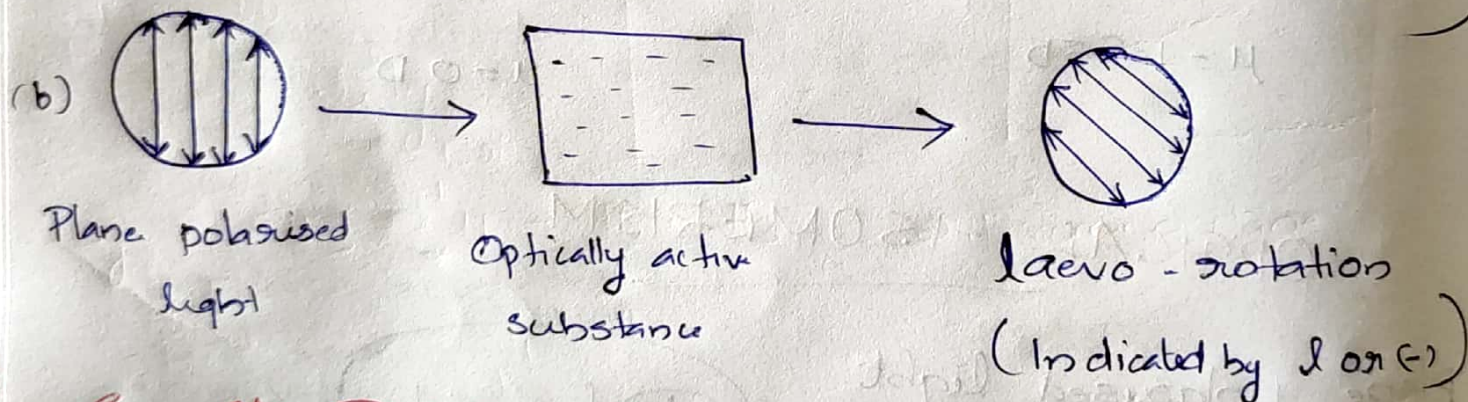 (b)
Plane polarised
light
Optically active
substance
laevo - rotation
(Indicated by l or (-))